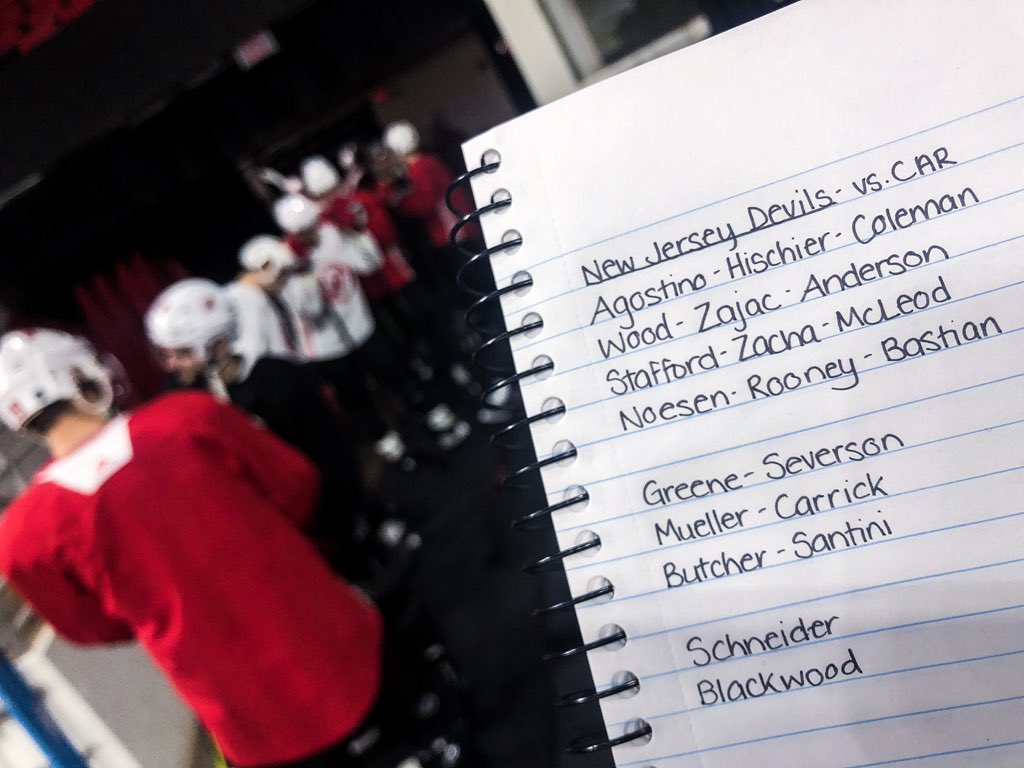 New Jersey Devils - vs. CAR
Agostino - Hischier - Coleman
Wood - Zajac - Anderson
Stafford - Zacha - McLeod
Noesen - Rooney - Bastian
Greene - Severson
Mueller - Carrick
Butcher - Santini
Schneider
Blackwood